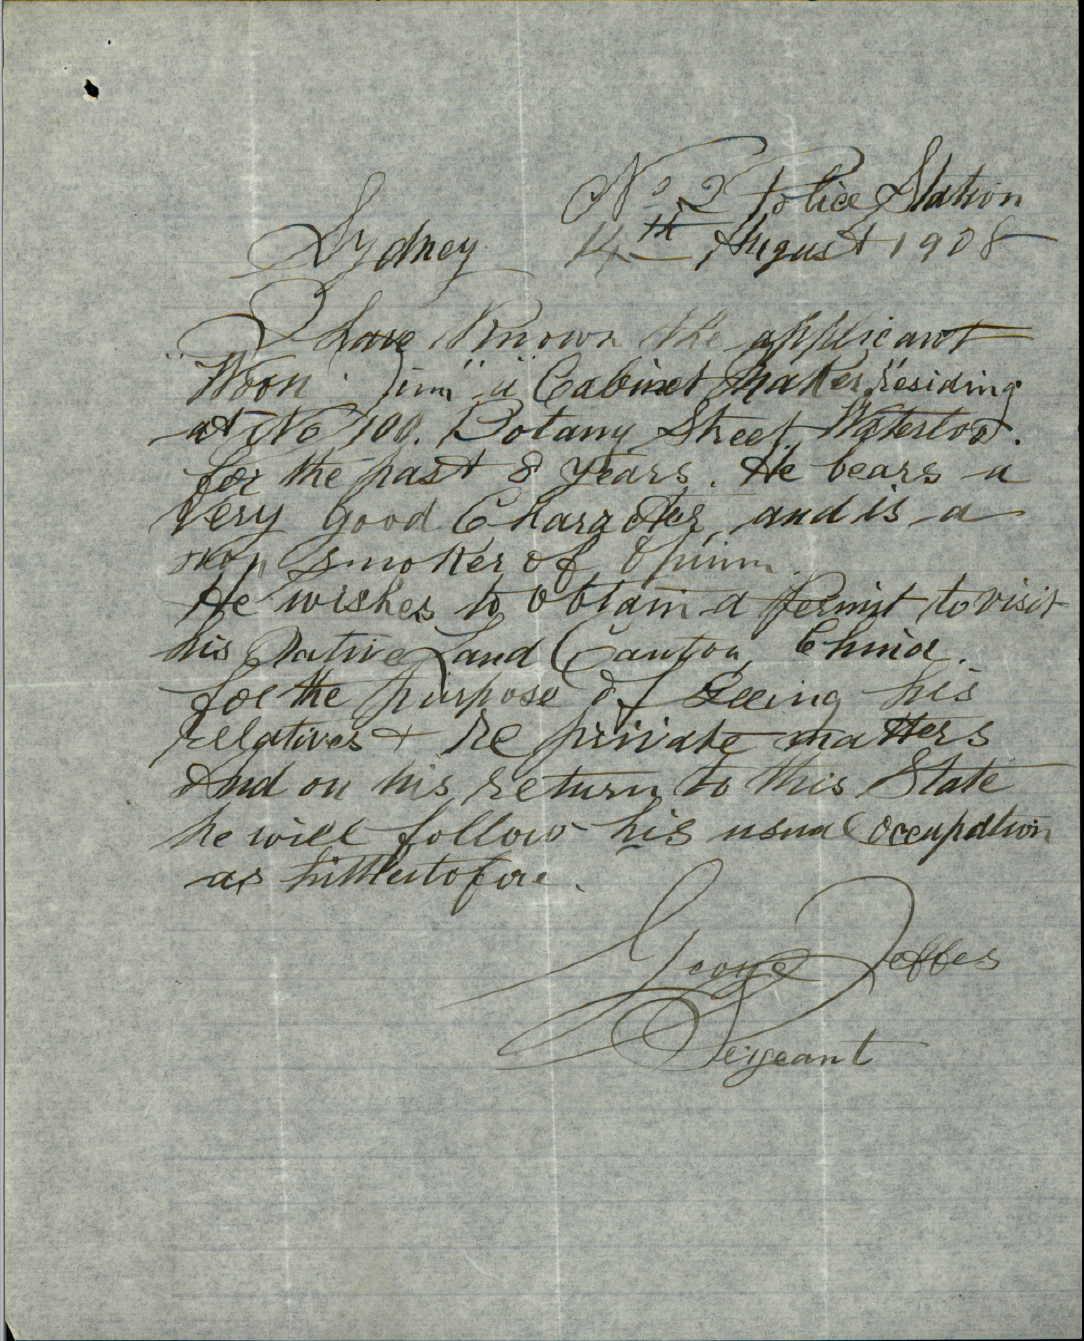 No 2 Police Station
Sydney 14th August 1908
I have Known the applicant
"Woon Jim" a "Cabinet Maker" residing
at No 100. Botany Street, Waterloo.
for the past 8 years. He bears a
Very good Character and is a
non smoker of Opium.
He wishes to obtain a Permit to visit
his Native Land Canton, China.
for the purpose of Seeing his
relatives + re private matters
and on his return to this State
he will follow his usual occupation
as hithertofore.
George Jeffes
Sergeant